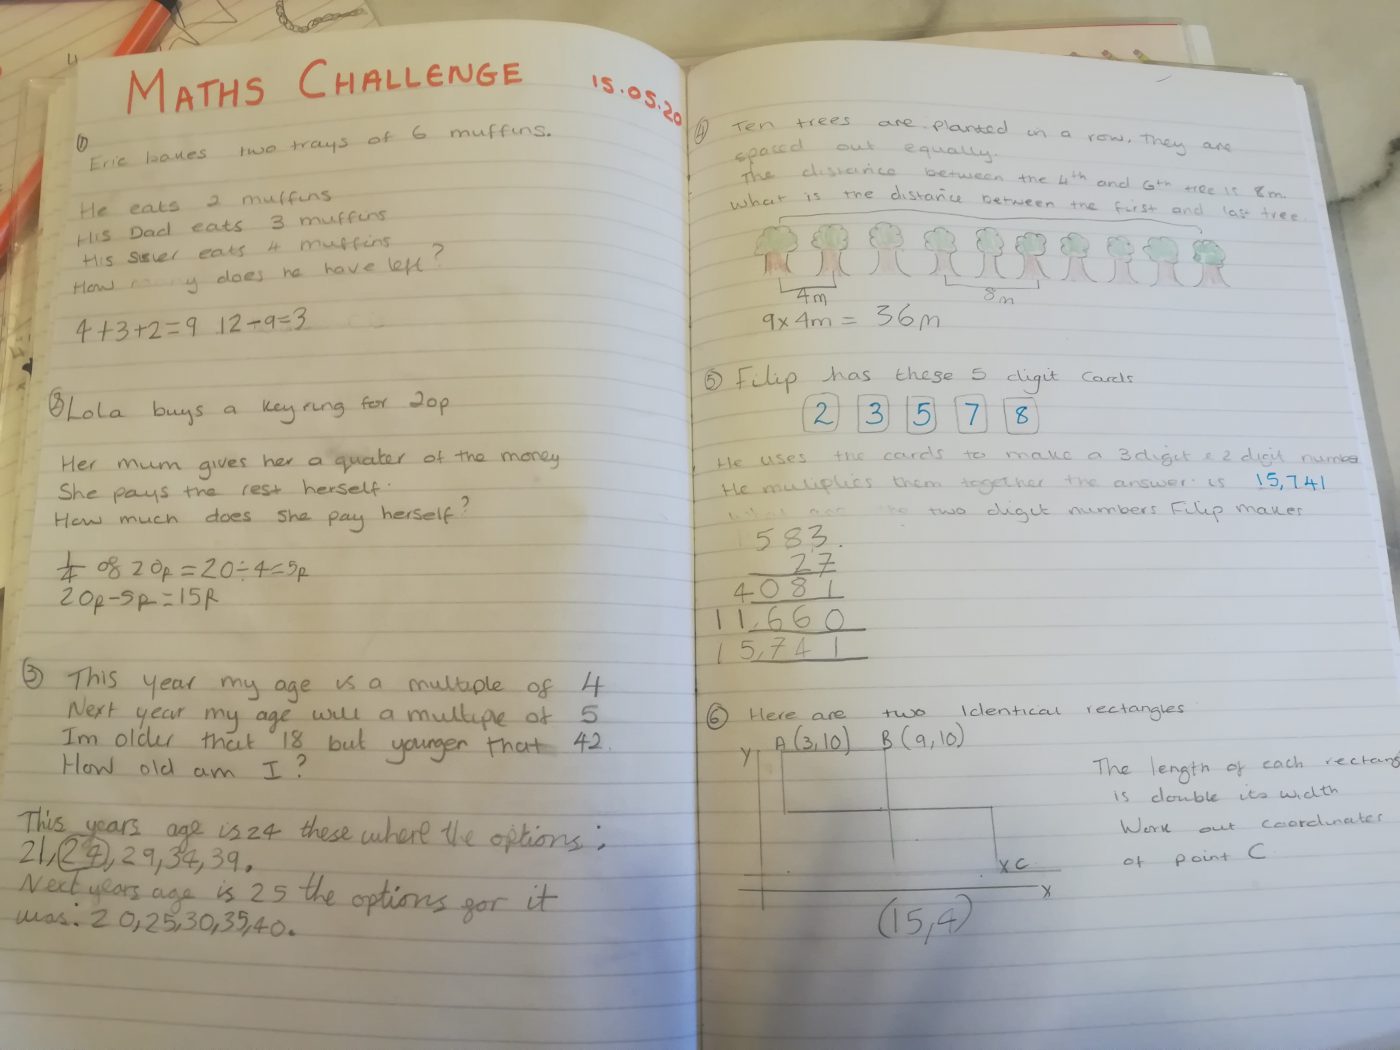 MATHS CHALLENGE
15.05.20
①
Eric bakes two trays of 6 muffins.
He eats 2 muffins
His Dad eats 3 muffins
His Sister eats 4 muffins
How many does he have left?
4+3+2=9 12-9=3
② Lola buys a keyring for 20p
Her mum gives her a quater of the money
She pays the rest herself.
How much does she pay herself?
1/4 of 20p=20÷4=5p
20p-5p=15p
③ This year my age is a multiple of 4
Next year my age will a multiple of 5
Im older that 18 but younger that 42.
How old am I?
This years age is 24 these where the options:
21,24,29,34,39.
Next years age is 25 the options for it
was: 20,25,30,35,40.
④ Ten trees are planted in a row. They are
spaced out equally.
The distance between the 4th and 6th tree is 8m.
What is the distance between the first and last tree.
4m
8m
9x4m = 36m
⑤ Filip has these 5 digit cards
2 3 5 7 8
He uses the cards to make a 3digit & 2 digit number
He muliplies them together the answer is 15,741
two digit numbers Filip makes
583.
27
4081
11,660
15,741
⑥ Here are two Identical rectangles
Y A (3,10) B (9,10)
The length of each rectang
is double its width
Work out coordinates
of point C
x C
x
(15,4)